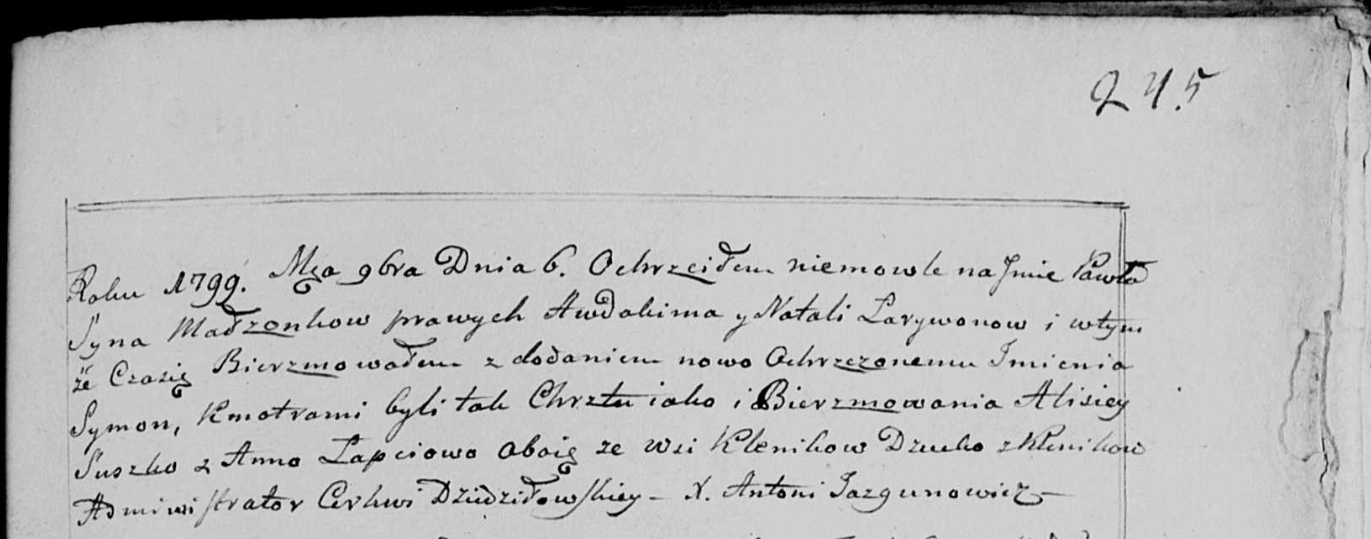 245
Roku 1799. Mca 9bra Dnia 6. Ochrzciłem niemowle na Jmie Pawła
Syna Małzonkow prawych Awdakima y Natali Larywonow i wtym
że Czasię Bierzmowałem z dodaniem nowo Ochrzczonemu Imienia
Symon, Kmotrami byli tak Chrztu iako i Bierzmowania Alisiey
Suszko z Anno Łapciowo oboię ze wsi Klenikow Dziecko z Klenikow
Administrator Cerkwi Dziedziłowskiey – X. Antoni Jazgunowicz